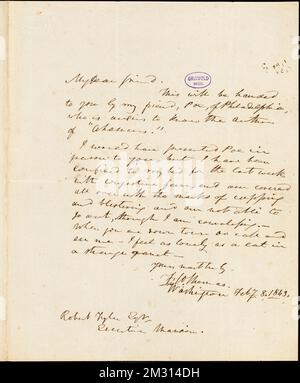 My dear friend.
GRISWOLD
MSS.
This will be handed
to you by my friend, Poe, of Philadelphia,
who is anxious to know the author
of "Ahasuerus."
I would have presented Poe in
person to you; but I have been
confined to my bed for the last week
with congestive fever, and am covered
all over with the marks of cupping
and blistering and am not able to
go out, though I am convalescing
When you are down town do call and
see me – I feel as lonely as a cat in
a strange garret –
Yours, most truly
Thomas.
Washington Feby. 8. 1843.
Robert Tyler Esqr
Executive Mansion.
alamy
Image ID: 2M314DH
www.alamy.com